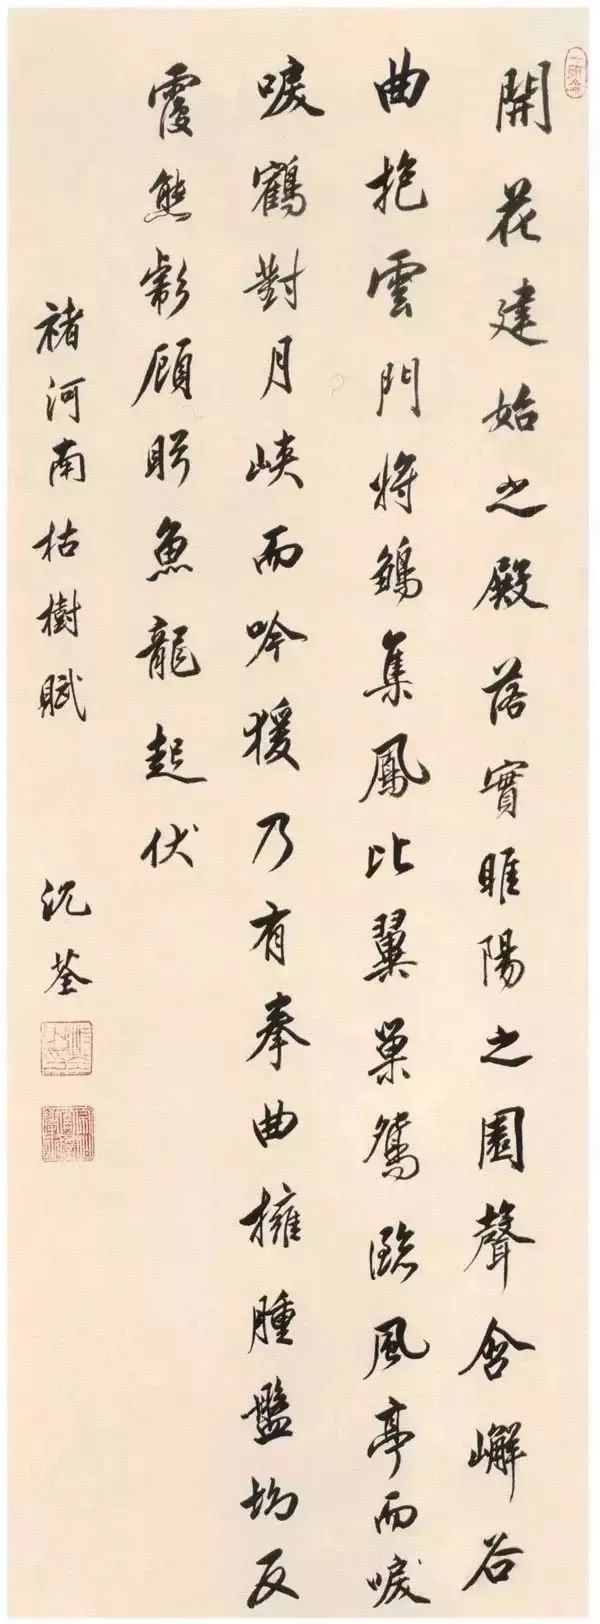 開花建始之殿落實睢陽之園聲含嶰谷
曲抱雲門將鶵集鳳比翼巢鴛臨風亭而唳
唳鶴對月峽而吟猨乃有奉曲擁腫盤坳反
覆熊彲顧盻魚龍起伏
褚河南枯樹賦 沈荃